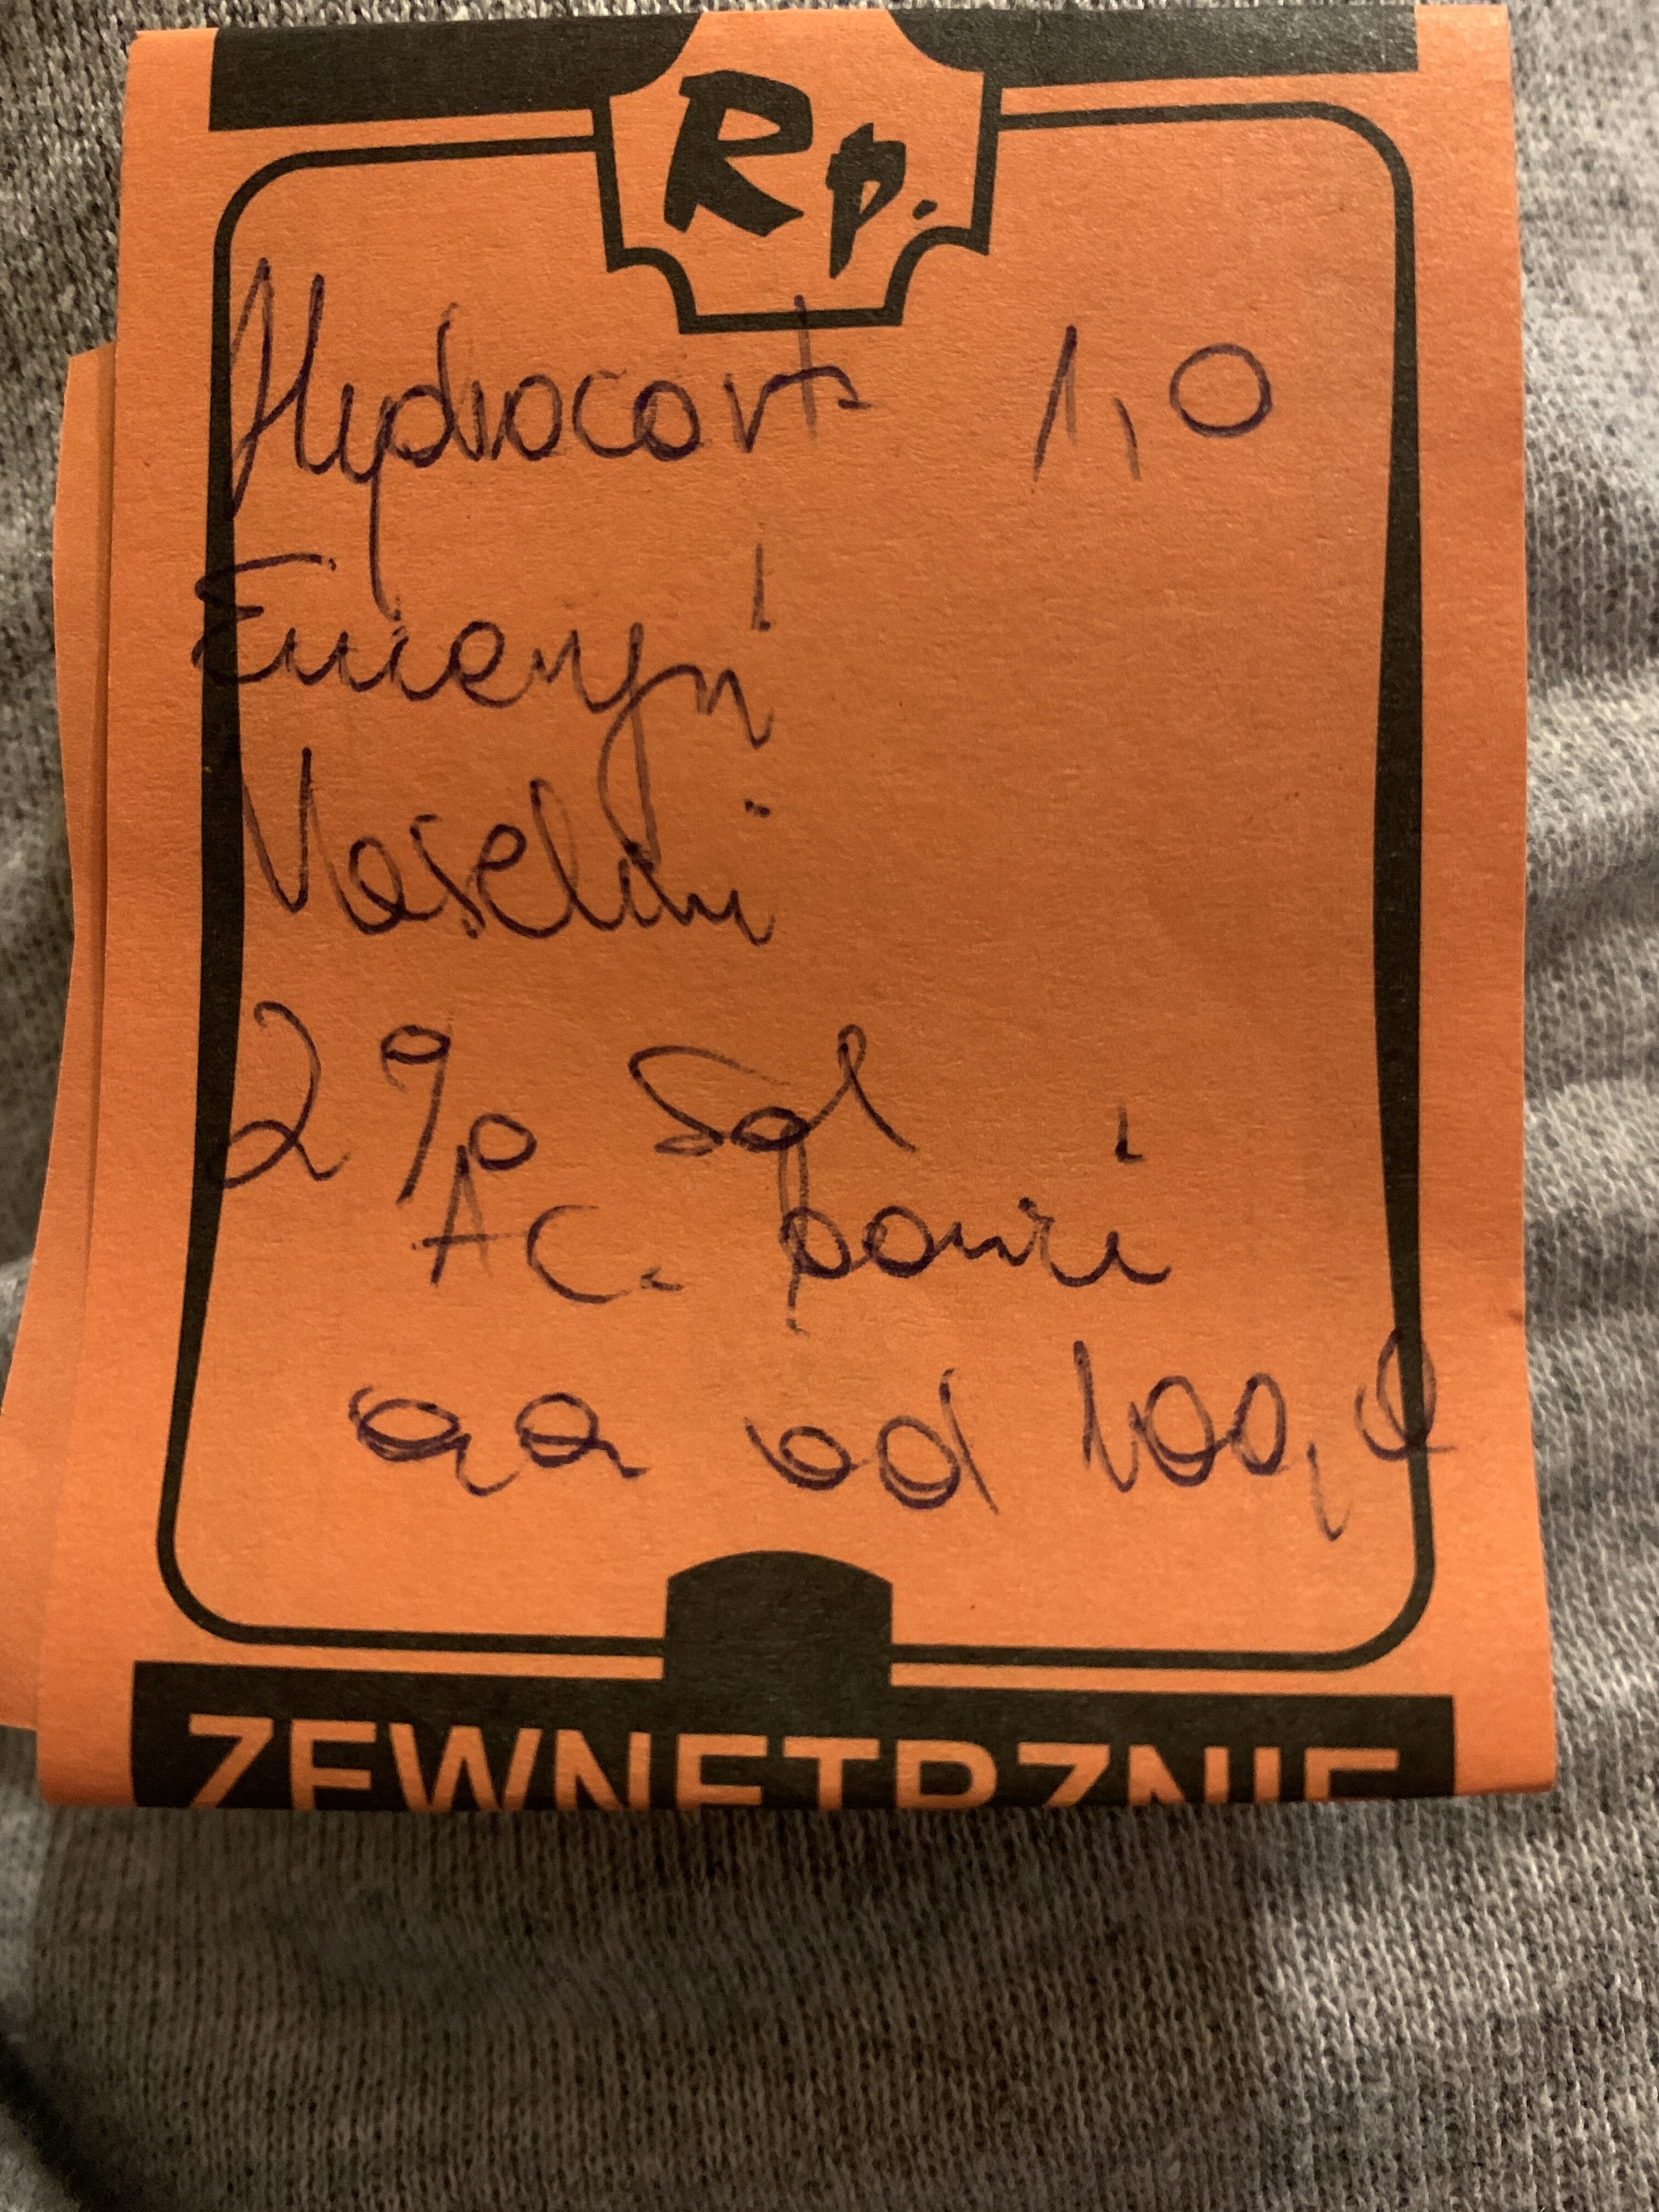 Rp.
Hydrocort. 1,0
Eucerini
Vaselini
2% Sol
Ac. borici
aa ad 100,0
ZEWNĘTRZNIE